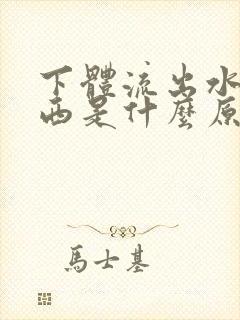 下體流出水
西是什麼原
馬士基